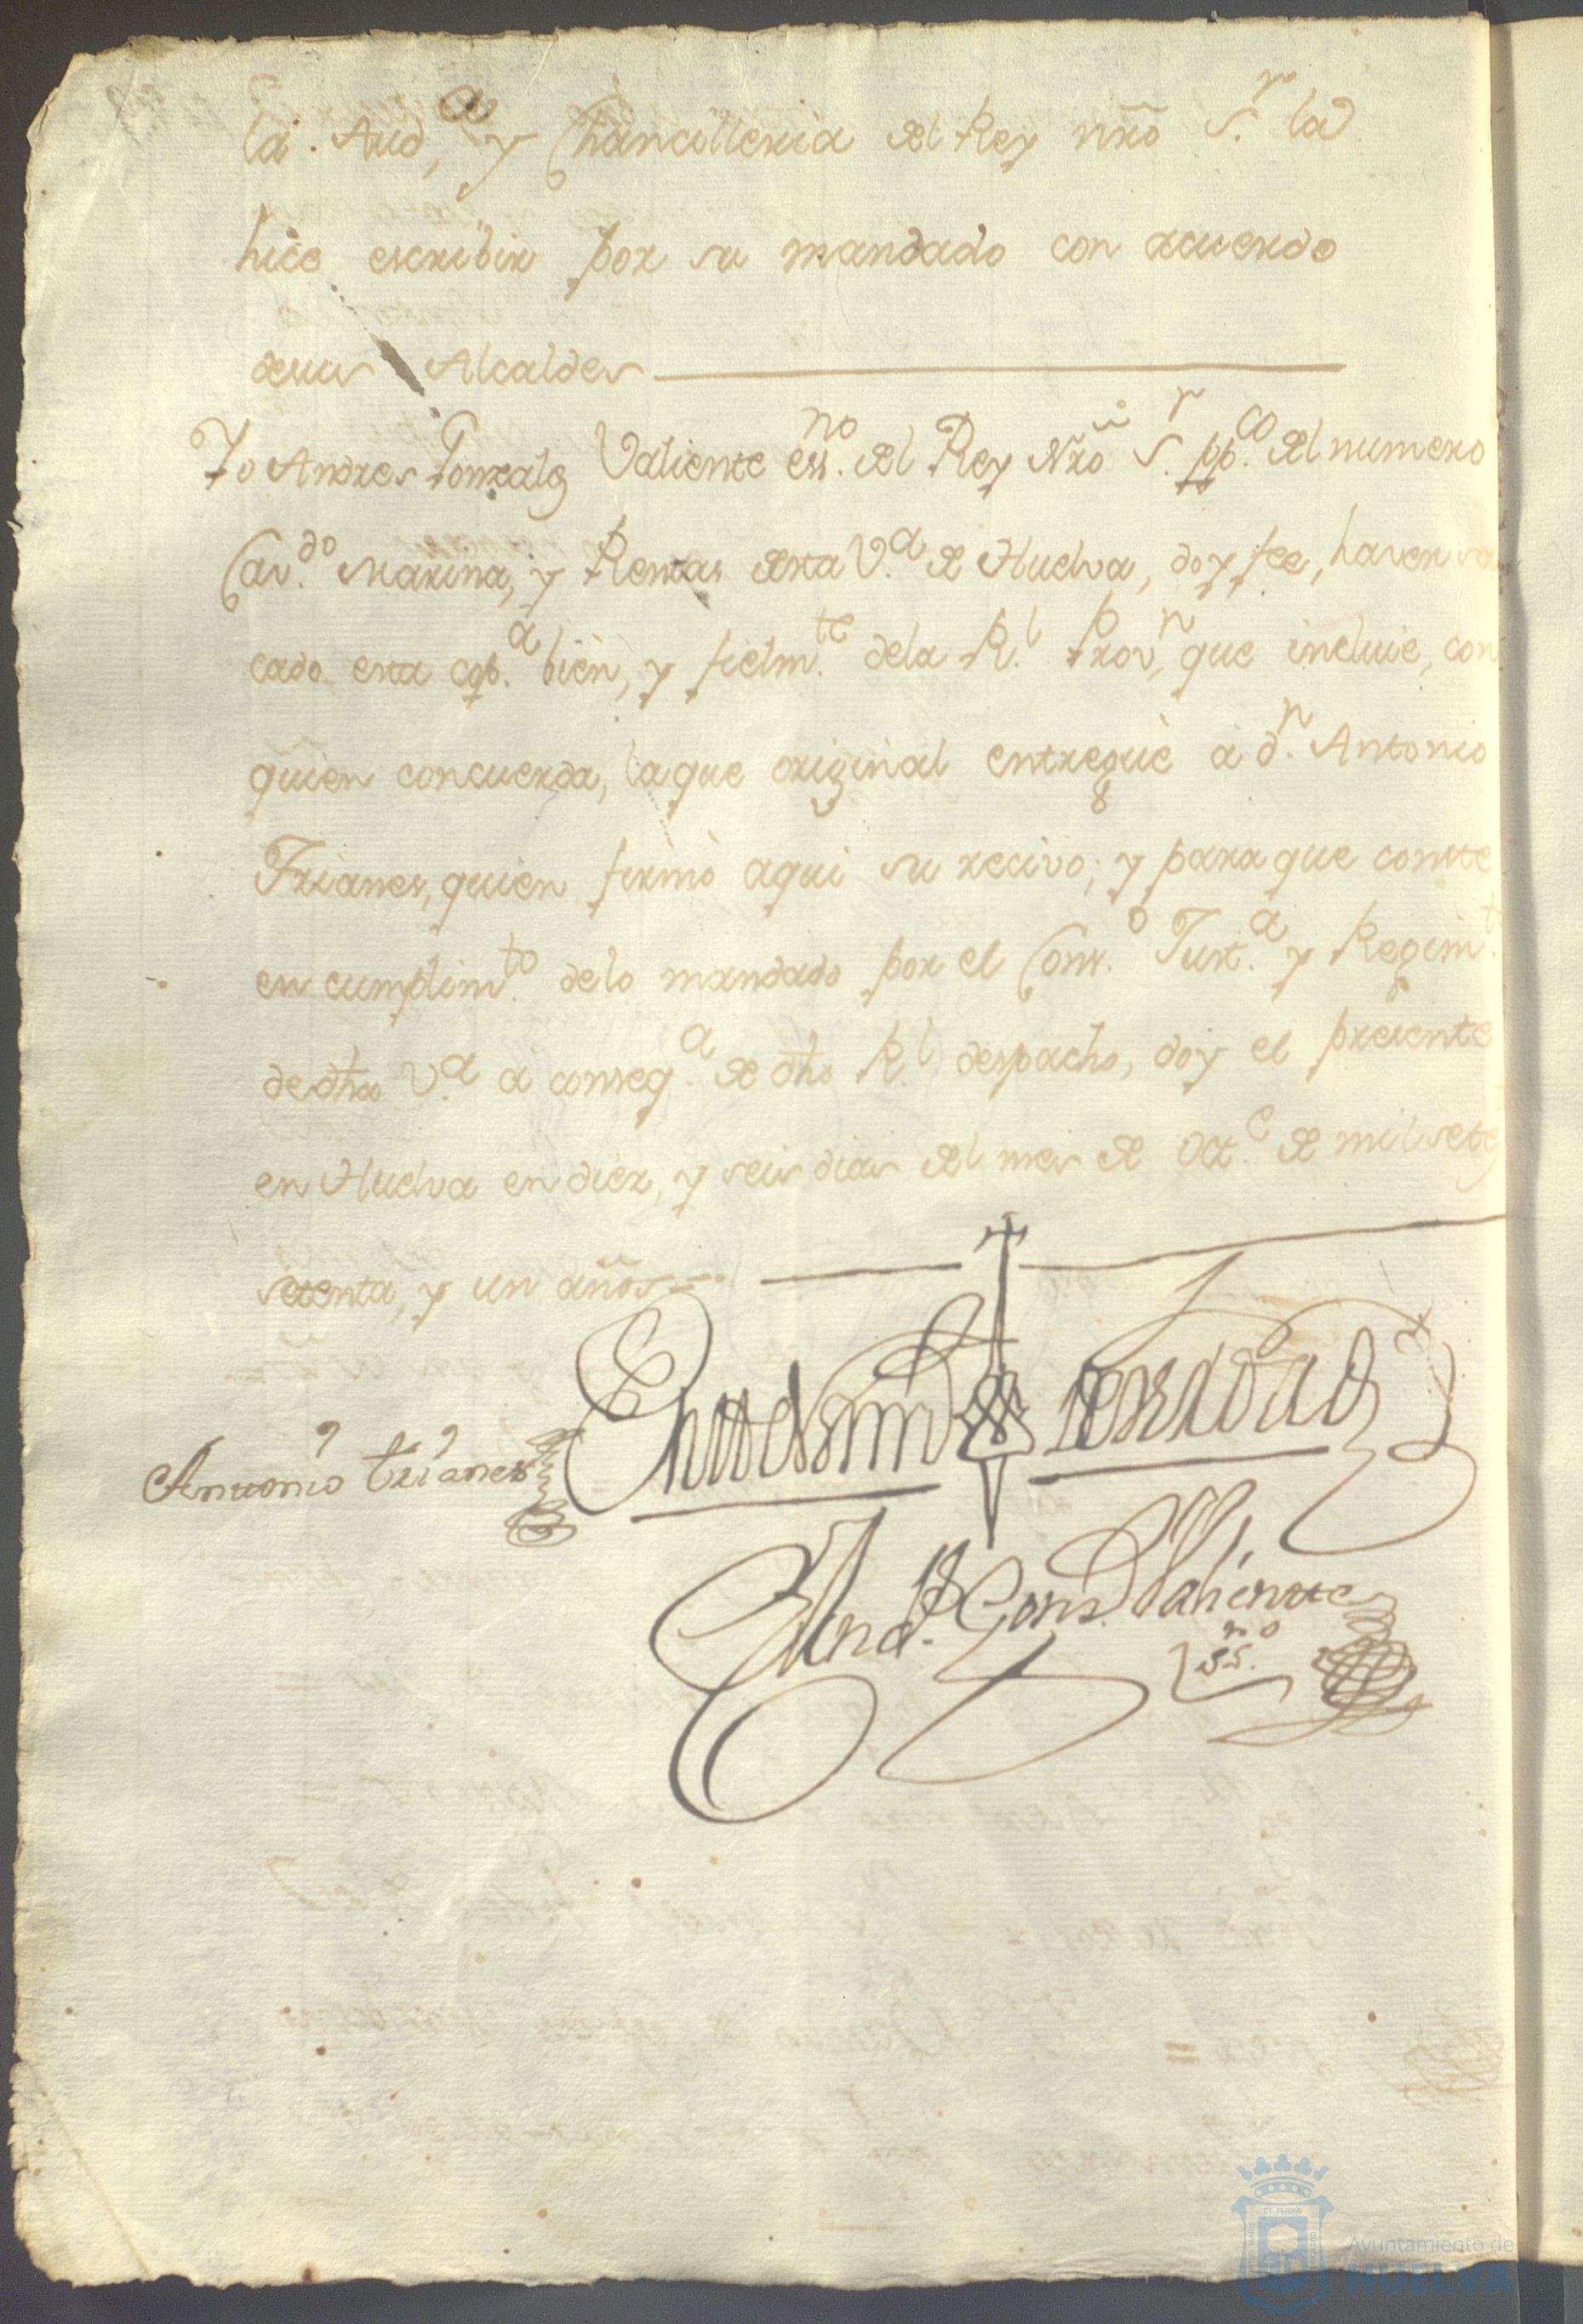 la Aud.ª y Chancilleria del Rey nro S.r la
hice escribir por su mandado con acuerdo
desus Alcaldes
Yo Andres Gonzalez Valiente ess.no del Rey Nro S.r pp.co del numero
Cav.do Marina, y Rentas desta V.a de Huelva, doy fee, haver sa
cado esta cop.a bien, y fielm.te dela R.l Prov.n que incluie, con
quien concuerda, la que original entregue à d.n Antonio
Trianes, quien firmò aqui su recivo; y para que conste
en cumplim.to delo mandado por el Cons.o Just.a y Regim.to
de dha V.a à conseq.a de dho R.l despacho, doy el presente
en Huelva en diez, y seis dias del mes de Oct.e de mil setez
setenta, y un años
Antonio trianes
And.s Gonz. Valiente
ss.no
Ayuntamiento de
HUELVA